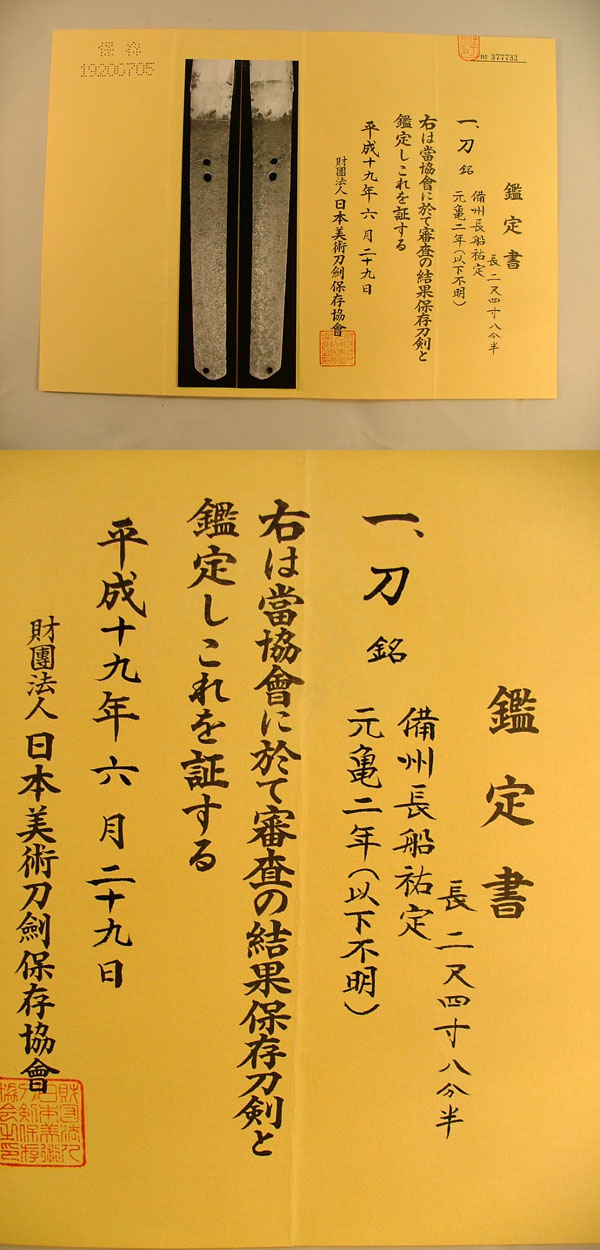 保存
1920G705
№ 377732
鑑定書
長二尺四寸八分半
一、刀 銘 備州長船祐定
元亀二年(以下不明)
右は當協會に於て審査の結果保存刀剣と
鑑定しこれを証する
平成十九年六月二十九日
財團法人日本美術刀劍保存協會
鑑定書
長二尺四寸八分半
一、刀 銘 備州長船祐定
元亀二年(以下不明)
右は當協會に於て審査の結果保存刀剣と
鑑定しこれを証する
平成十九年六月二十九日
財團法人日本美術刀劍保存協會